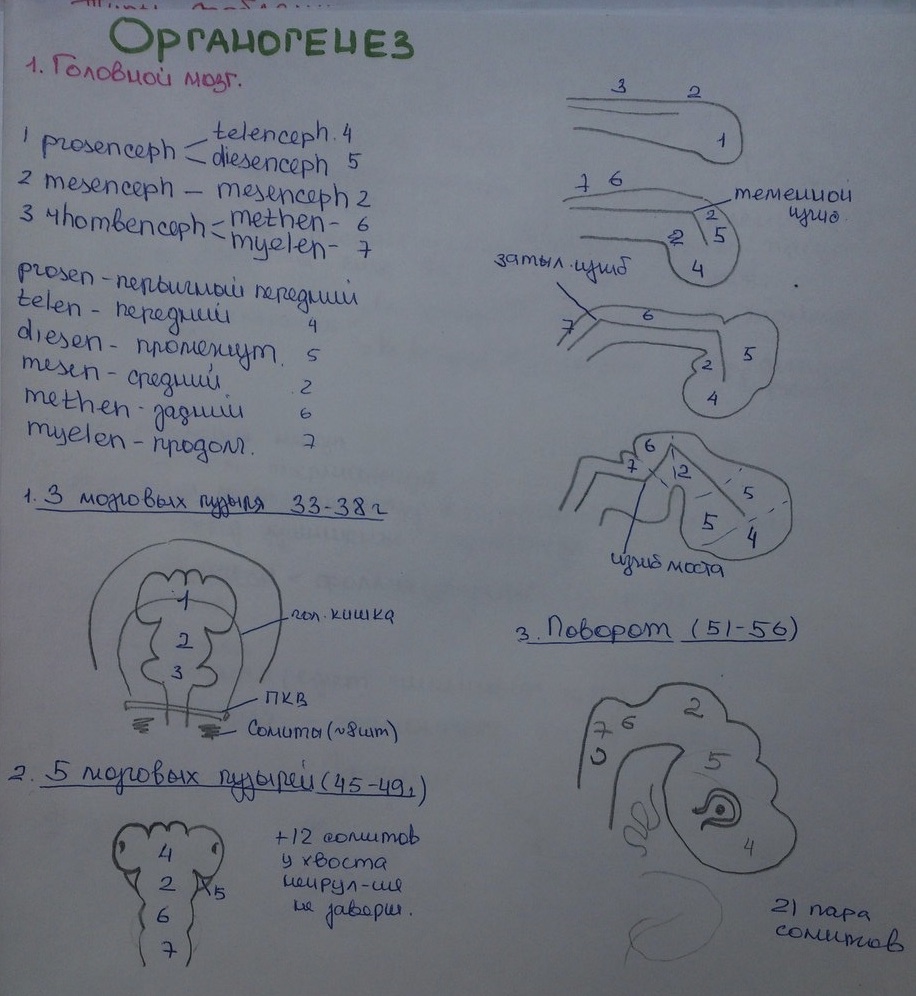 Органогенез
1. Головной мозг.
1 prosenceph
telenceph. 4
diesenceph 5
2 mesenceph – mesenceph 2
3 rhombenceph
methen- 6
myelen- 7
prosen - первичный передний
telen - передний 4
diesen - промежут. 5
mesen - средний 2
methen - задний 6
myelen - продолг. 7
1. 3 мозговых пузыря 33-38 г
1
2
3
гол. кишка
ПКВ
Сомиты (~8шт)
2. 5 мозговых пузырей (45-49)
4
2
5
6
7
+12 сомитов
у хвоста
нейрул-ия
не заверш.
3 2
1
7 6
теменной
изгиб
2
5
2
4
затыл. изгиб
7
6
5
2
4
6
7
12
5
5
4
изгиб моста
3. Поворот (51-56)
7
6
2
5
4
21 пара
сомитов